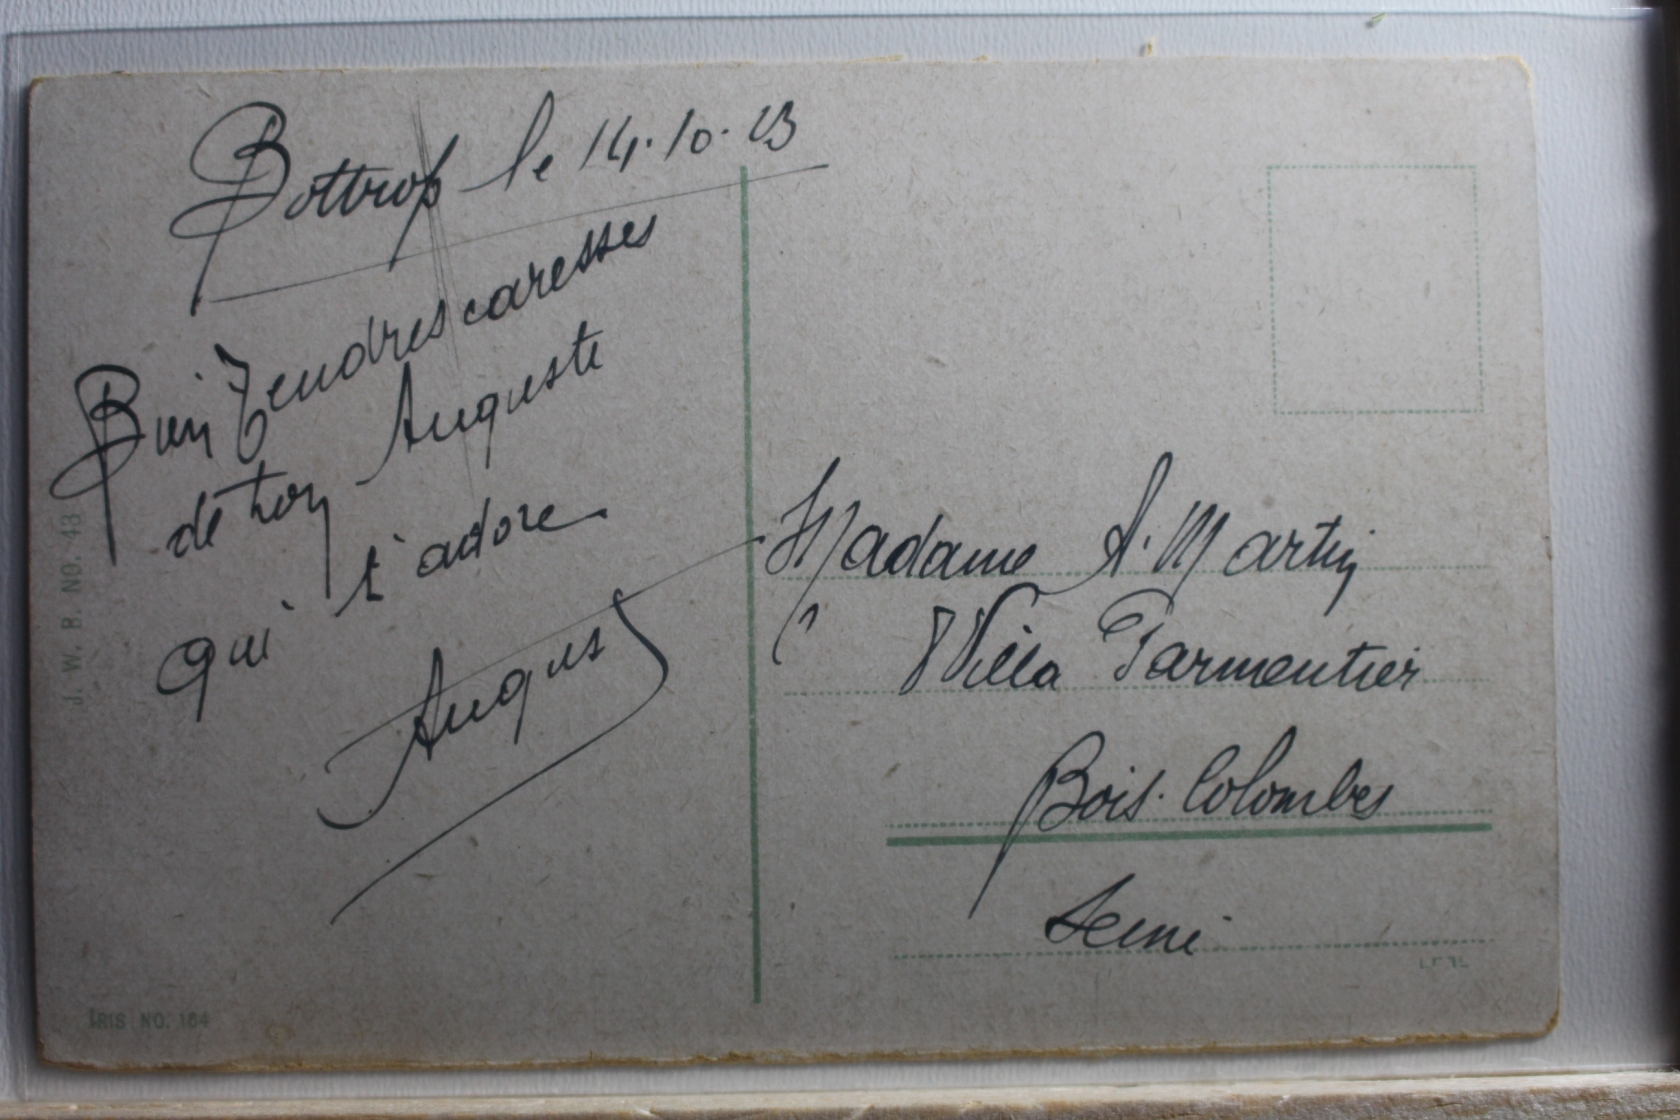 Bottrop le 14.10.23
Bien Tendres caresses
de ton Auguste
qui t'adore
August
Madame A. Martin
8 Villa Parmentier
Bois-Colombes
Seine
J. W. B. NO. 43
IRIS NO. 164